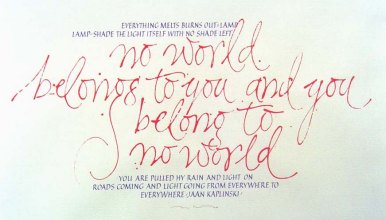 EVERYTHING MELTS BURNS OUT·LAMP
LAMP-SHADE THE LIGHT ITSELF WITH NO SHADE LEFT
no world
belongs to you and you
belong to
no world
YOU ARE PULLED BY RAIN AND LIGHT ON
ROADS COMING AND LIGHT GOING FROM EVERYWHERE TO
EVERYWHERE·JAAN KAPLINSKI·